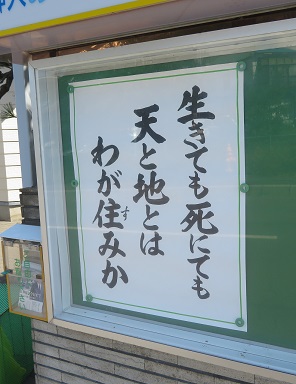 生きても死にても
天と地とは
わが住みか
す